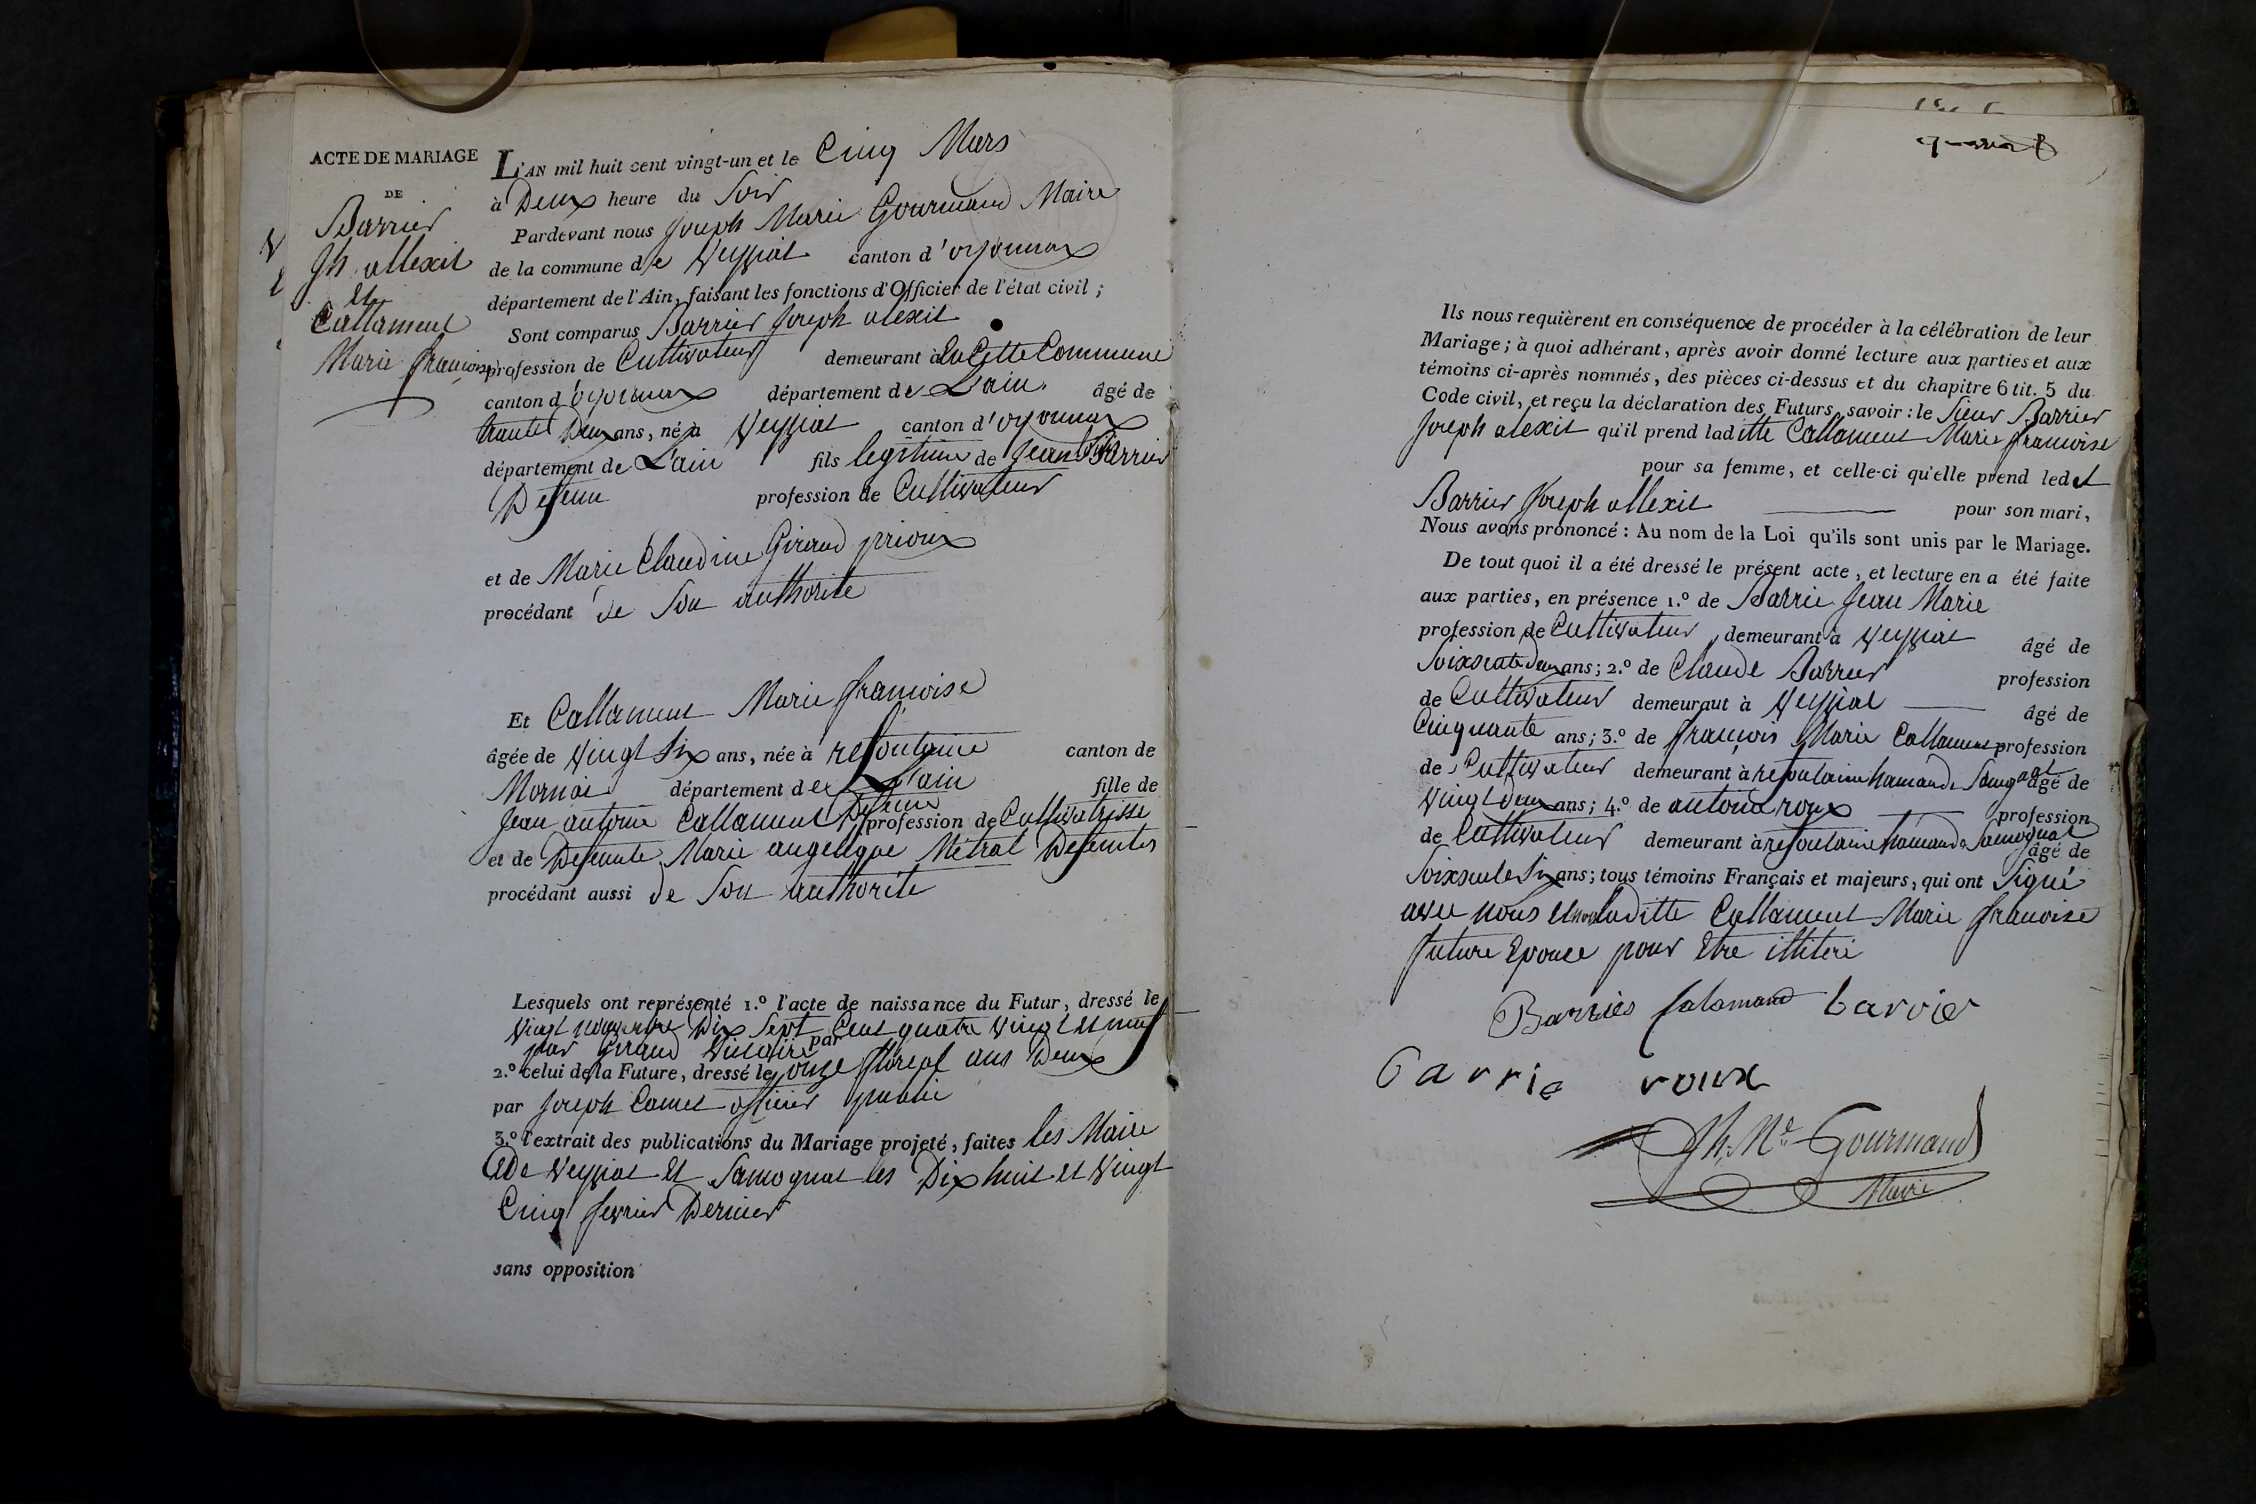 ACTE DE MARIAGE
DE
Barrier
Jh allexit
et
Callament
Marie françoise
L'AN mil huit cent vingt-un et le Cinq Mars
à Deux heure du Soir
Pardevant nous Joseph Marie Gourmand Maire
de la commune de Veyziat canton d'oyonnax
département de l'Ain, faisant les fonctions d'Officier de l'état civil ;
Sont comparus Barrier Joseph alexit
profession de Cultivateur demeurant à laditte Commune
canton d'oyonnax département de L'ain âgé de
trante Deux ans, né à Veyziat canton d'oyonnax
département de L'ain fils legitime de Jean Barrier
Defunu profession de Cultivateur
et de Marie Claudine Giraud
procédant de Son authorite
Et Callament Marie francoise
âgée de Vingt Six ans, née à refontaine canton de
Mornai département de L'ain fille de
Jean antoine Callament Defunu profession de Cultivatrisse
et de Defunte Marie angelique Métral Defuntes
procédant aussi de Son authorité
Lesquels ont représenté 1.º l'acte de naissance du Futur, dressé le
Vingt novembre Dix Sept Cent quatre Vingt et neuf
par Giraud Viccaire par
2.º celui de la Future, dressé le onze floreal ans Deux
par Joseph Comet officier public
3.º l'extrait des publications du Mariage projeté, faites les Maire
De Veyziat et Samognat les Dix huit et Vingt
Cinq fevrier Dernier
sans opposition
Ils nous requièrent en conséquence de procéder à la célébration de leur
Mariage ; à quoi adhérant, après avoir donné lecture aux parties et aux
témoins ci-après nommés, des pièces ci-dessus et du chapitre 6 tit. 5 du
Code civil, et reçu la déclaration des Futurs, savoir : le Sieur Barrier
Joseph alexit qu'il prend laditte Callament Marie francoise
pour sa femme, et celle-ci qu'elle prend ledet
Barrier Joseph allexit pour son mari,
Nous avons prononcé : Au nom de la Loi qu'ils sont unis par le Mariage.
De tout quoi il a été dressé le présent acte, et lecture en a été faite
aux parties, en présence 1.º de Barrie Jean Marie
profession de Cultivateur demeurant à Veyziat âgé de
Soixante Deux ans ; 2.º de Claude Barrier profession
de Cultivateur demeurant à Veyziat âgé de
Cinquante ans ; 3.º de françois Marie Callament profession
de Cultivateur demeurant à refontaine hamaude Samognat âgé de
Vingt Deux ans ; 4.º de antoine roux profession
de Cultivateur demeurant à refontaine hamaude Samognat âgé de
Soixsente Six ans ; tous témoins Français et majeurs, qui ont Signé
avec nous et non laditte Callament Marie francoise
future Epouse pour Etre illiteré
Barrier Calamand barrier
barrie roux
Jh. Me Gourmand
Maire